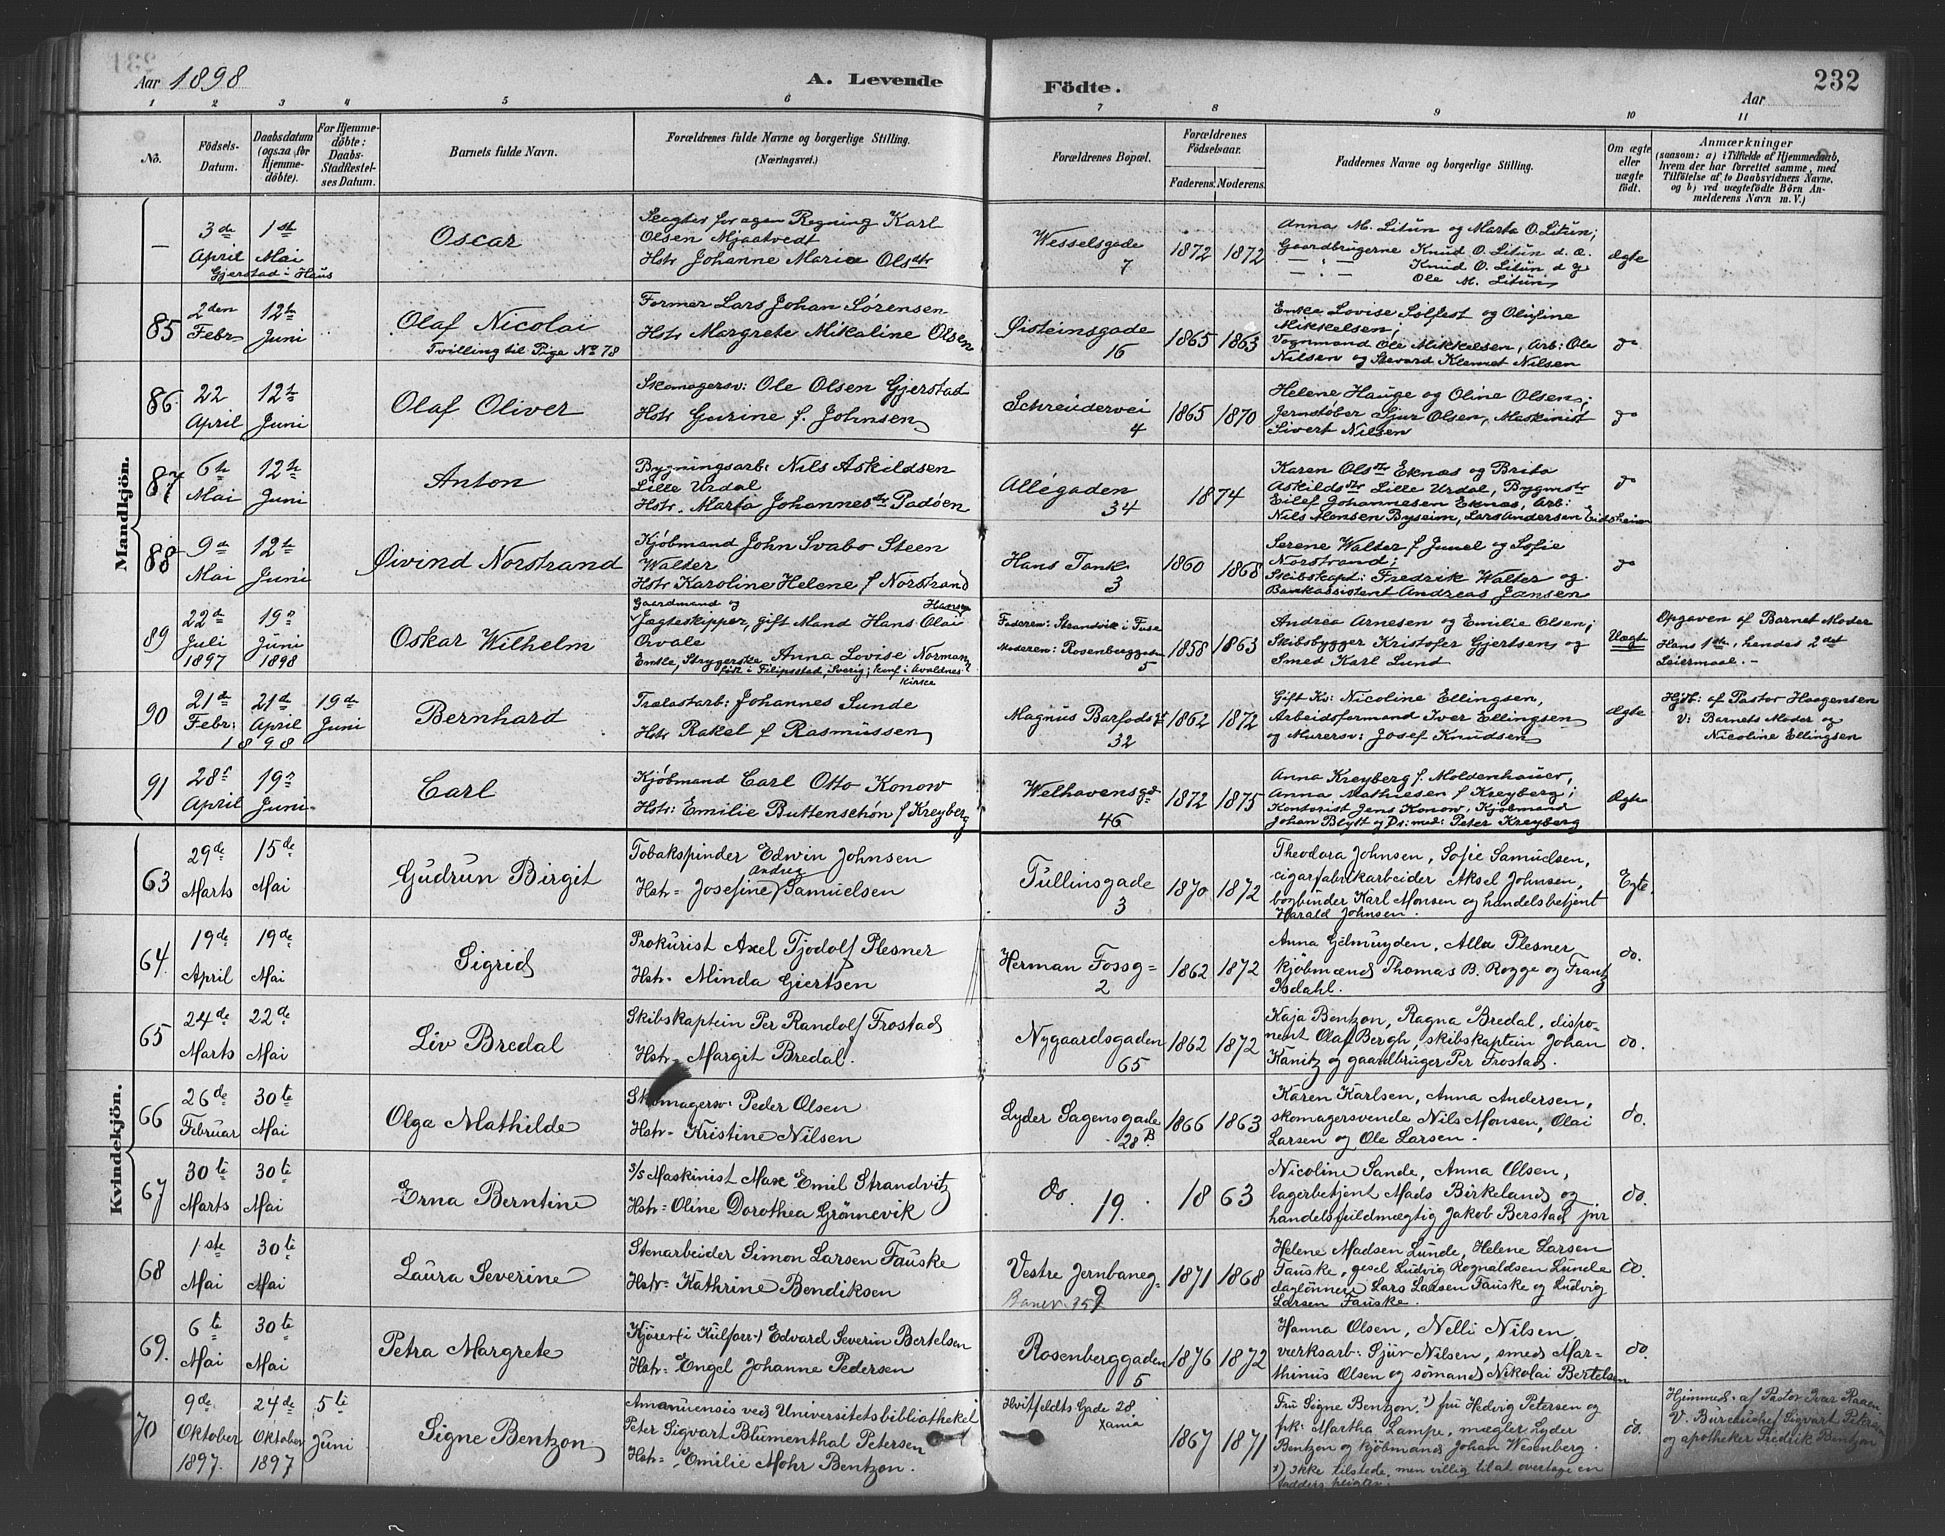 Aar 1898
A. Levende
Födte.
Aar
232
1 2 3 4 5 6 7 8 9 10 11
No.
Födsels-Datum.
Daabsdatum (ogsaa for Hjemmedöbte).
For Hjemmedöbte: Daabs-Stadfæstelses Datum.
Barnets fulde Navn.
Forældrenes fulde Navne og borgerlige Stilling. (Næringsvei.)
Forældrenes Bopæl.
Forældrenes Födselsaar.
Faderens. Moderens.
Faddernes Navne og borgerlige Stilling.
Om ægte eller uægte födt.
Anmærkninger
(saasom: a) i Tilfælde af Hjemmedaab, hvem der har forrettet samme, med Tilföielse af to Daabsvidners Navne, og b) ved uægtefödte Börn Anmelderens Navn m. V.)
Mandkjön.
—
3de April
1ste Mai
Gjerstad i Haus
Oscar
Slagter for egen Regning Karl
Olsen Mjaatvedt
Hstr Johanne Maria Olsdtr
Wesselsgade
7
1872 1872
Anna M. Litun og Marta O. Litun;
Gaardbrugerne Knud O. Litun d. æ.
— " — Knud O. Litun d y
Ole M. Litun
Ægte
85
2den Febr
12te Juni
Olaf Nicolai
Tvilling til Pige No 78
Former Lars Johan Sørensen
Hstr Margrete Mikaline Olsen
Øisteinsgade
16
1865 1863
Enke Lovise Solfest og Olufine
Mikkelsen;
Vognmand Ole Mikkelsen, Arb: Ole
Nilsen og Stevard Klemet Nilsen
do
86.
22 April
12te Juni
Olaf Oliver
Skomagersv: Ole Olsen Gjerstad
Hstr Gurine f. Johnsen
Schreudervei
4
1865 1870
Helene Hauge og Oline Olsen;
Jernstøber Sjur Olsen, Maskinist
Sivert Nilsen
do
87
6te Mai
12te Juni
Anton
Bygningsarb: Nils Askildsen
Lille Urdal
Hstr. Marta Johannesdtr Padøen
Allégaden
34
1874
Karen Olsdtr Eknæs og Brita
Askildsdtr Lille Urdal, Bygmstr
Eilef Johannesen Eknæs, Arb:
Nils Monsen Byseim, Lars Andersen Eidsheim
do
88
9de Mai
12te Juni
Øivind Norstrand
Kjøbmand John Svabo Steen
Walter
Hstr Karoline Helene f Norstrand
Hans Tank
3
1860 1868
Serene Walter f Juuel og Sofie
Norstrand;
Skibskapt: Fredrik Walter og
Bankassistent Andreas Jansen
do
89
22de Juli 1897
19de Juni 1898
Oskar Wilhelm
Gaardmand og
Jægteskipper, gift Mand Hans Olai Hansen
Orvale
Enke, Strygerske Anna Lovise Normann
født i Filipstad, Sverig; konf i Avaldnes
Kirke
Faderen: Strandvik i Fuse
Moderen: Rosenberggaden
5
1858 1863
Andrea Arnesen og Emilie Olsen;
Skibsbygger Kristofer Gjertsen og
Smed Karl Lund
Uægte
Opgaven af Barnet Moder
Hans 1ste, hendes 2det
Leiermaal. —
90
21de Febr:
21de April
1898
19de Juni
Bernhard
Trælastarb: Johannes Sunde
Hstr Rakel f Rasmussen
Magnus Barfods gt
32
1862 1872
Gift Ko: Nicoline Ellingsen,
Arbeidsformand Iver Ellingsen
og Murersv: Josef Knudsen
Ægte
Hjdb: af Pastor Haagensen
V: Barnets Moder og
Nicoline Ellingsen
91
28de April
19de Juni
Carl
Kjöbmand Carl Otto Konow
Hstr: Emilie Buttenschøn f Kreyberg
Welhavensgd
46
1872 1875
Anna Kreyberg f. Moldenhauer,
Anna Mathiesen f Kreyberg;
Kontorist Jens Konow, Kjøbmand
Johan Blytt og Dr: med: Peter Kreyberg
Ægte
Kvindekjön.
63
29de Marts
15de Mai
Gudrun Birgit
Tobakspinder Edwin Johnsen
Hstr= Josefine Andrea Samuelsen
Tullinsgade
3
1870 1872
Theodora Johnsen, Sofie Samuelsen,
cigarfabrikarbeider Aksel Johnsen,
bogbinder Karl Monsen og handelsbetjent
Harald Johnsen.
Egte.
64.
19de April
19de Mai
Sigrid
Prokurist Axel Tjodolf Plesner
Hstr. Minda Giertsen
Herman Fossg=
2
1862 1872
Anna Gilmuyden, Alla Plesner
kjøbmænd Thomas B. Rogge og Frantz
Isdahl.
do.
65
24de Marts
22de Mai
Liv Bredal
Skibskaptein Per Randolf Frostad
Hstr= Margit Bredal.
Nygaardsgaden
65
1862 1872
Kaja Bentzon, Ragna Bredal, dispo-
nent Olaf Bergh, skibskaptein Johan
Kanitz og gaardbruger Per Frostad.
do.
66
26de Februar
30te Mai
Olga Mathilde
Skomagersv: Peder Olsen
Hstr= Kristine Nilsen
Lyder Sagensgade
28 B
1866 1863
Karen Karlsen, Anna Andersen,
skomagersvende Nils Monsen, Olai
Larsen og Ole Larsen.
do.
67
30te Marts
30te Mai
Erna Berntine
S/S Maskinist Max Emil Strandvitz
Hstr= Oline Dorothea Grönnevik
do. 19.
1863
Nicoline Sande, Anna Olsen,
lagerbetjent Mads Birkeland og
handelsfuldmægtig Jakob Berstad jnr
do.
68
1ste Mai
30te Mai
Laura Severine
Stenarbeider Simon Larsen Fauske
Hstr= Kathrine Bendiksen
Vestre Jernbaneg=
9
1871 1868
Helene Madsen Lunde, Helene Larsen
Fauske, gesel Ludvig Rognaldsen Lunde
daglönner Lars Larsen Fauske og Ludvig
Larsen Fauske.
do.
69.
6te Mai
30te Mai
Petra Margrete
Kjörer (i Kulforr.) Edvard Severin Bertelsen
Hstr= Engel Johanne Pedersen
Rosenberggaden
5
1876 1872
Hanna Olsen, Nelli Nilsen,
værksarb: Sjur Nilsen, smed Mar-
thinus Olsen og sömand Nikolai Bertelsen
do.
70
9de Oktober 1897.
24de Oktober 1897
5te Juni
Signe Bentzon
Amanuensis ved Universitetsbibliotheket
Peter Sigvart Blumenthal Petersen
Hstr= Emilie Mohr Bentzon.
Hvitfeldts Gade 28
Xania
1867 1871
Fru Signe Bentzon, *) fru Hedvig Petersen og
frk: Martha Lampe, mægler Lyder
Bentzon og kjøbmand Johan Wesenberg.
*) ikke tilstede, men villig til at overtage en
fadders pligter.
do.
Hjemmed. af Pastor Ivar Raaen
V. Bureauchef Sigvart Petersen
og apotheker Fredrik Bentzon